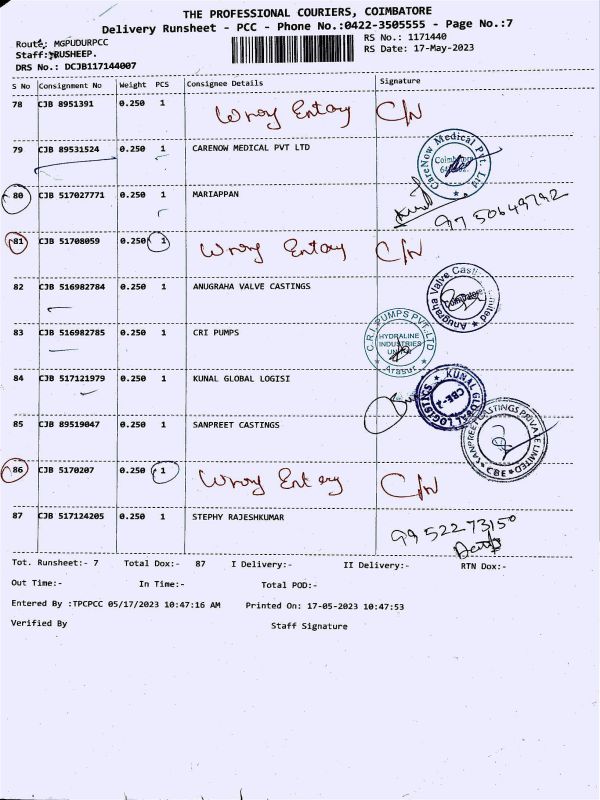 THE PROFESSIONAL COURIERS, COIMBATORE
Delivery Runsheet - PCC - Phone No.:0422-3505555 - Page No.:7
Route: MGPUDURPCC
RS No.: 1171440
Staff: RUSHEEP.
RS Date: 17-May-2023
DRS No.: DCJB117144007
S No Consignment No Weight PCS Consignee Details Signature
78 CJB 8951391 0.250 1 Wrong Entry C/N
79 CJB 89531524 0.250 1 CARENOW MEDICAL PVT LTD
CareNow Medical Pvt. Ltd
80 CJB 517027771 0.250 1 MARIAPPAN
9750649792
81 CJB 51708059 0.250 1 Wrong Entry C/N
82 CJB 516982784 0.250 1 ANUGRAHA VALVE CASTINGS
Anugraha Valve Casting Limited Coimbatore
83 CJB 516982785 0.250 1 CRI PUMPS
C.R.I. PUMPS PVT. LTD
HYDRALINE
INDUSTRIES
UNIT
Arasur
84 CJB 517121979 0.250 1 KUNAL GLOBAL LOGISI
KUNAL GLOBAL LOGISTICS
85 CJB 89519047 0.250 1 SANPREET CASTINGS
SANPREET CASTINGS PRIVATE LIMITED
CBE
86 CJB 5170207 0.250 1 Wrong Entry C/N
87 CJB 517124205 0.250 1 STEPHY RAJESHKUMAR
9952273150
Tot. Runsheet:- 7 Total Dox:- 87 I Delivery:- II Delivery:- RTN Dox:-
Out Time:- In Time:- Total POD:-
Entered By :TPCPCC 05/17/2023 10:47:16 AM Printed On: 17-05-2023 10:47:53
Verified By Staff Signature